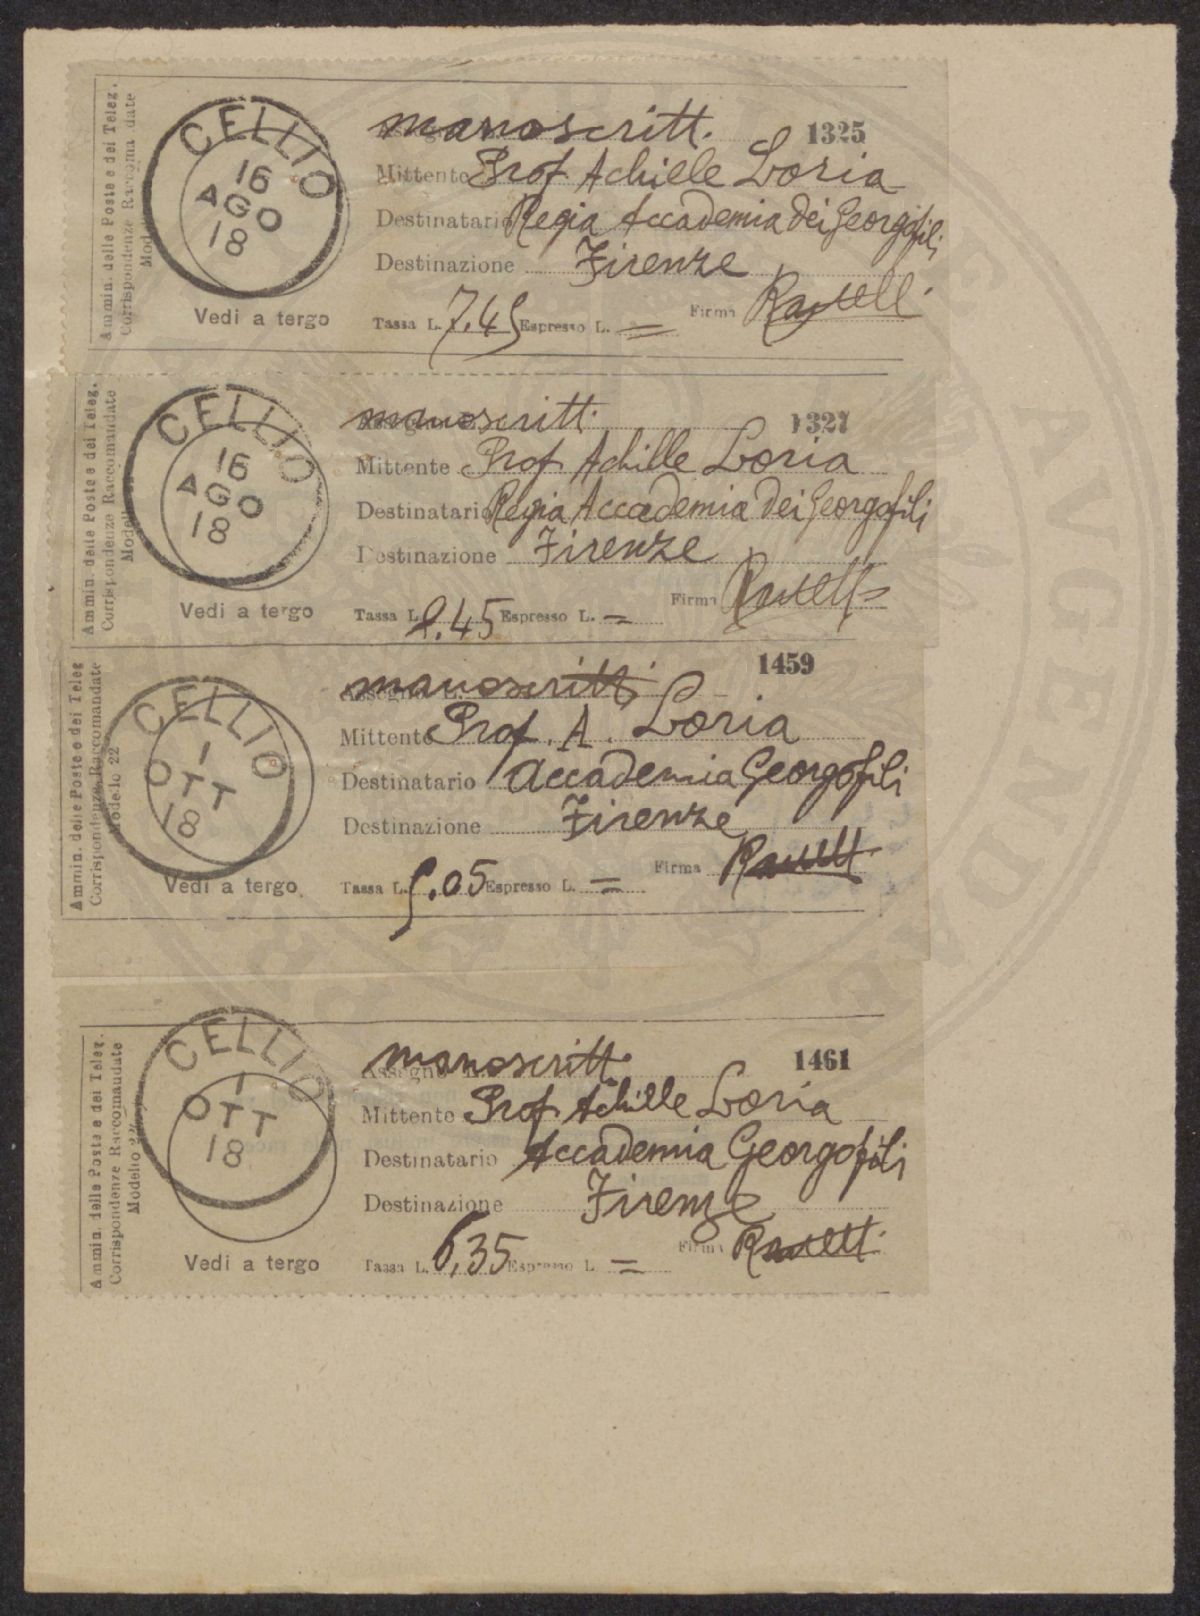 Ammin. delle Poste e dei Teleg.
Corrispondenze Raccoma date
CELLIO
16
AGO
18
Vedi a tergo
manoscritti
1325
Mittente Prof Achille Loria
Destinatario Regia Accademia dei Georgofili
Destinazione Firenze
Tassa L. 7.45 Espresso L. =
Firma
Ammin. delle Poste e dei Teleg.
Corrispondenze Raccomandate
CELLIO
16
AGO
18
Vedi a tergo
manoscritti
1327
Mittente Prof Achille Loria
Destinatario Regia Accademia dei Georgofili
Destinazione Firenze
Tassa L. .45 Espresso L. =
Firma
Ammin. delle Poste e dei Teleg
Corrispondenze Raccomandate
Modello 22
CELLIO
1
OTT
18
Vedi a tergo
manoscritti
1459
Mittente Prof. A. Loria
Destinatario Accademia Georgofili
Destinazione Firenze
Tassa L. 5.05 Espresso L. =
Firma
Ammin. delle Poste e dei Teleg.
Corrispondenze Raccomandate
Modello
CELLIO
1
OTT
18
Vedi a tergo
manoscritti
1461
Mittente Prof Achille Loria
Destinatario Accademia Georgofili
Destinazione Firenze
Tassa L. 6,35 Espresso L =
Firma